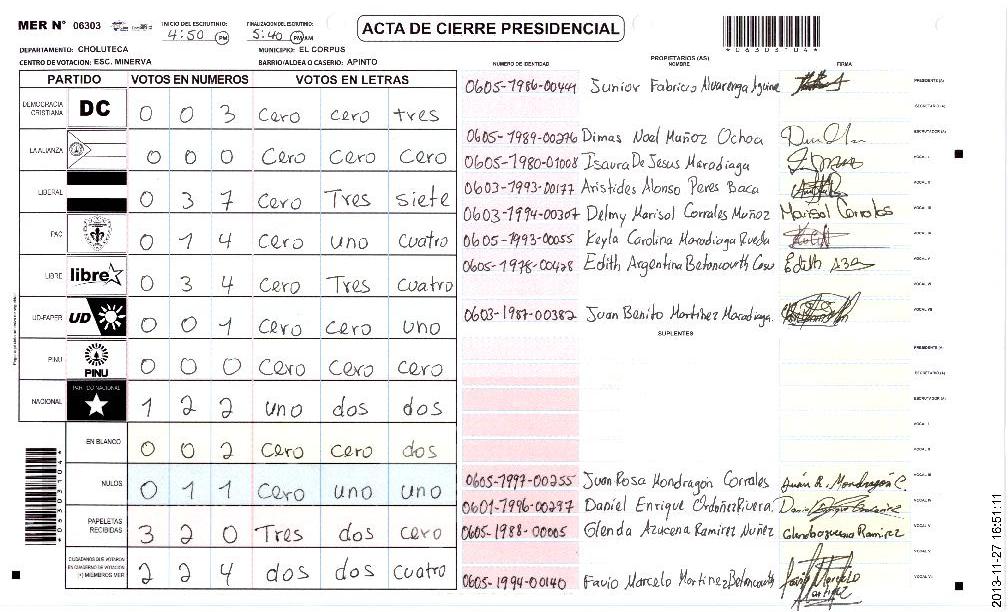 MER N° 06303
INICIO DEL ESCRUTINIO:
4:50 PM
FINALIZACION DEL ESCRUTINIO:
5:40 PM/AM
ACTA DE CIERRE PRESIDENCIAL
*06303104*
DEPARTAMENTO: CHOLUTECA
MUNICIPIO: EL CORPUS
CENTRO DE VOTACION: ESC. MINERVA
BARRIO/ALDEA O CASERIO: APINTO
PARTIDO VOTOS EN NUMEROS VOTOS EN LETRAS
DEMOCRACIA CRISTIANA DC 0 0 3 Cero cero tres
LA ALIANZA 0 0 0 Cero Cero Cero
LIBERAL 0 3 7 Cero Tres siete
PAC 0 1 4 Cero uno cuatro
LIBRE libre 0 3 4 Cero Tres cuatro
UD-FAPER UD 0 0 1 Cero Cero uno
PINU PINU 0 0 0 Cero Cero Cero
NACIONAL PARTIDO NACIONAL 1 2 2 uno dos dos
EN BLANCO 0 0 2 Cero Cero dos
NULOS 0 1 1 Cero uno uno
PAPELETAS RECIBIDAS 3 2 0 Tres dos cero
CIUDADANOS QUE VOTARON EN CUADERNO DE VOTACION (+) MIEMBROS MER 2 2 4 dos dos cuatro
*06303104*
PROPIETARIOS (AS)
NUMERO DE IDENTIDAD NOMBRE FIRMA
0605-1986-00441 Junior Fabricio Alvarenga Aguirre PRESIDENTE (A)
SECRETARIO (A)
0605-1989-00276 Dimas Noel Muñoz Ochoa ESCRUTADOR (A)
0605-1980-01008 Isaura De Jesus Maradiaga VOCAL I
0603-1993-00177 Aristides Alonso Peres Baca VOCAL II
0603-1994-00307 Delmy Marisol Corrales Muñoz Marisol Corrales VOCAL III
0605-1993-00055 Keyla Carolina Maradiaga Rueda VOCAL IV
0605-1978-00428 Edith Argentina Betancourth Edith VOCAL V
VOCAL VI
0603-1987-00382 Juan Benito Martinez Maradiaga VOCAL VII
SUPLENTES
PRESIDENTE (A)
SECRETARIO (A)
ESCRUTADOR (A)
VOCAL I
VOCAL II
0605-1997-00255 Juan Rosa Mondragon Corrales Juan R. Mondragón C. VOCAL III
0601-1996-00297 Daniel Enrique Ordoñez Rivera VOCAL IV
0605-1988-00005 Glenda Azucena Ramirez Nuñez Glenda azucena Ramirez VOCAL V
0605-1994-00140 Favio Marcelo Martinez Betancourth Favio Marcelo Martinez VOCAL VII
2013-11-27 16:51:11